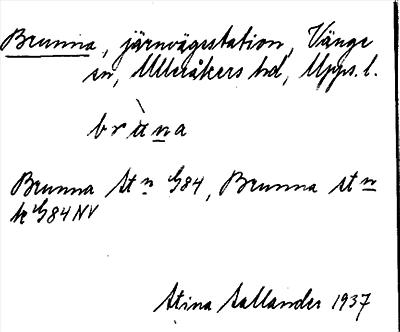 Brunna, järnvägsstation, Vänge
sn, Ulleråkers hd, Upps. l.
brùna
Brunna Stn G84, Brunna stn
k G84 NV
Stina Sallander 1937